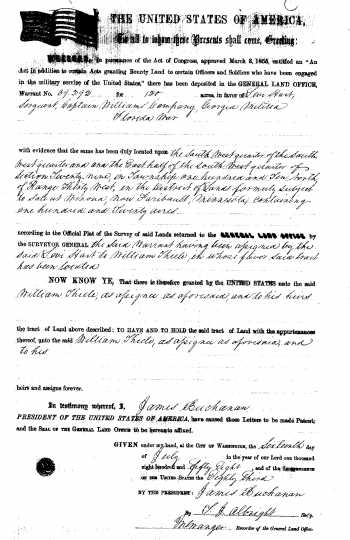 THE UNITED STATES OF AMERICA,
To all to whom these Presents shall come, Greeting:
WHEREAS, In pursuance of the Act of Congress, approved March 3, 1855, entitled an "An
Act in addition to certain Acts granting Bounty Land to certain Officers and Soldiers who have been engaged
in the military service of the United States," there has been deposited in the GENERAL LAND OFFICE,
Warrant No. for 120 acres, in favor of Levi Hart,
Sergeant, Captain Williams' Company, Georgia Militia
Florida War
with evidence that the same has been duly located upon the South West quarter of the South
West quarter and and the East half of the South West quarter of
Section Twenty nine, in Township one hundred and Ten North
of Range Thirty West, in the District of Lands formerly subject
to sale at Winona, now Faribault, Minnesota, containing
one hundred and Twenty acres.
according to the Official Plat of the Survey of said Lands returned to the GENERAL LAND OFFICE by
the SURVEYOR GENERAL the said Warrant having been assigned by the
said Levi Hart to William Thiele, in whose favor said tract
has been located
NOW KNOW YE, That there is therefore granted by the UNITED STATES unto the said
William Thiele, as assignee as aforesaid, and to his heirs
the tract of Land above described: TO HAVE AND TO HOLD the said tract of Land with the appurtenances
thereof, unto the said William Thiele, as assignee as aforesaid, and
to his
heirs and assigns forever.
In testimony whereof, I, James Buchanan
PRESIDENT OF THE UNITED STATES OF AMERICA, have caused these Letters to be made Patent,
and the SEAL OF THE GENERAL LAND OFFICE to be hereunto affixed.
GIVEN under my hand, at the CITY OF WASHINGTON, the Sixteenth day
of July in the year of our Lord one thousand
eight hundred and Fifty Eight, and of the INDEPENDENCE
OF THE UNITED STATES the Eighty Third
BY THE PRESIDENT: James Buchanan
By T. J. Albright Sec'y.
Recorder of the General Land Office.